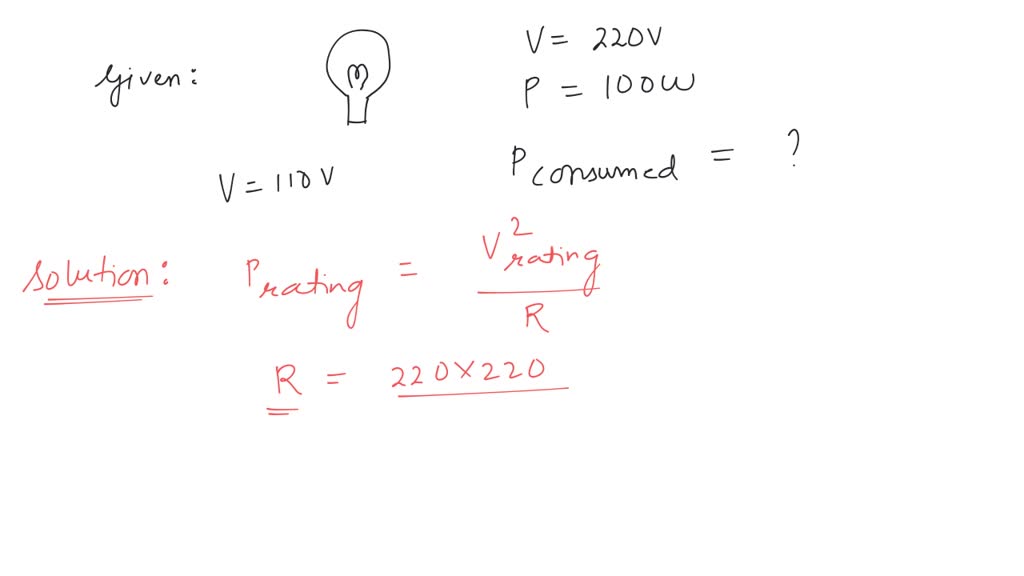 Given:
V = 220V
P = 100W
V = 110 V
Pconsumed = ?
Solution: Prating = V²rating
R
R = 220×220